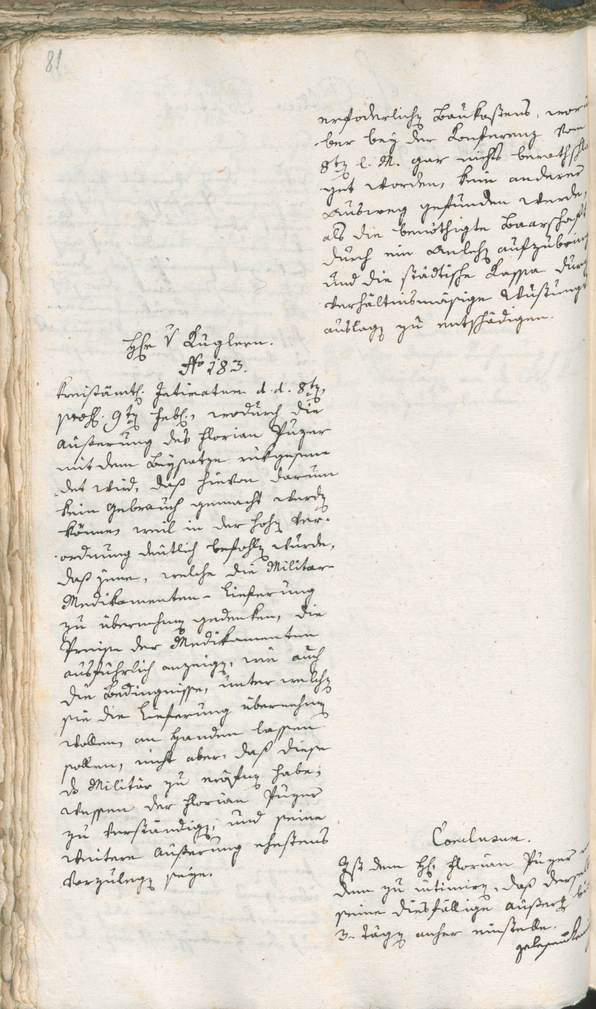 81
erforderlichen Baukostens, worü
ber bey der Konferenz vom
8ten l. M. gar nichts berathschla
get worden, kein anderer
Ausweg gefunden werde,
als die benöthigte Baarschaft
durch ein Anlehen aufzubringen
und die städtische Kassa durch
verhältnismäsige
auslagen zu entschädigen.
Hr v Kuglern.
No 283.
Kreisämtl. Intimatum d. d. 8ten,
praes. 9ten Febr., wodurch die
Äußerung des Florian Puzer
mit dem Beysatze rükgesen
det wird, daß hievon darum
kein Gebrauch gemacht werden
könne, weil in der hohen Ver-
ordnung deutlich befohlen wurde,
daß jene, welche die Militar
Medikamenten-Lieferung
zu übernehmen gedenken, die
Preise der Medikamenten
ausführlich anzeigen, wie auch
die Bedingnisse, unter welchen
sie die Lieferung übernehmen
wollen, an Handen lassen
sollen, nicht aber, daß diese
das Militär zu haben;
wessen der Florian Puzer
zu verständigen, und seine
weitere Äußerung ehestens
vorzulegen seye.
Conclusum.
Ist dem Hr. Florian Puzer
dem zu intimiren, daß derselbe
seine diesfällige Äußerung bin
3 Tägen anher einstelle.